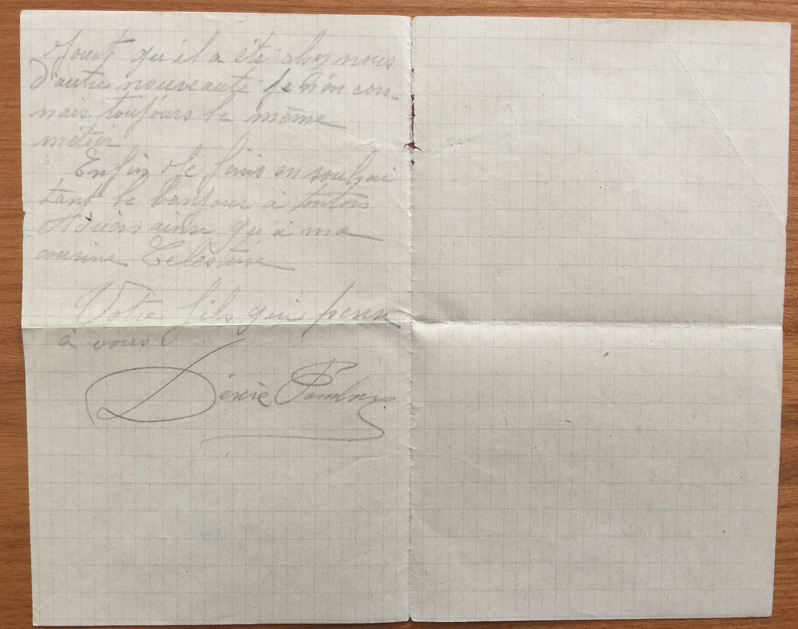 qu il a été chez nous
d'autre nouveauté je n'en con-
nais toujours le même
métier
Enfin je finis en souhai
tant le bonjour à tonton
ainsi qu'à ma
cousine Celestine
Votre fils qui pense
à vous
Désiré